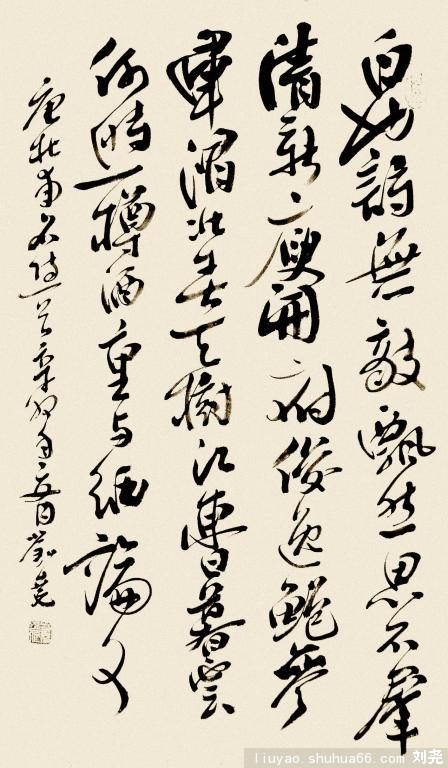 白也詩無敵飄然思不羣
清新庾開府俊逸鮑參
軍渭北春天樹江東日暮雲
何時一樽酒重与細論文
唐杜甫名诗一首辛卯年月劉堯
liuyao.shuhua66.com 刘尧